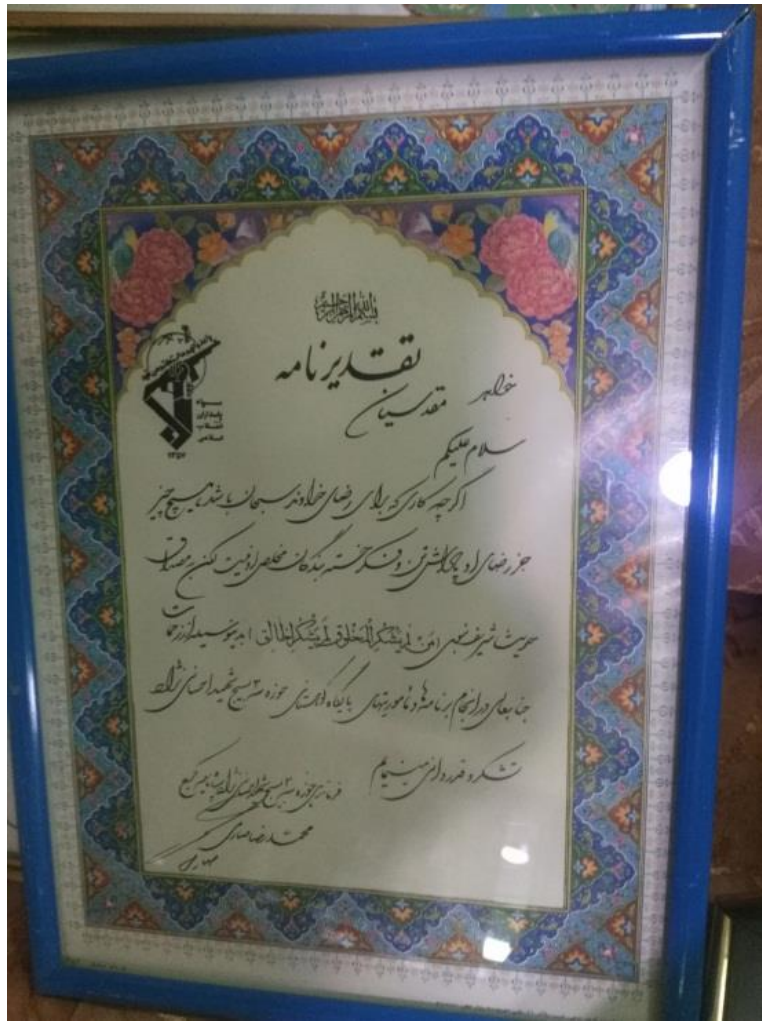 بسم الله الرحمن الرحیم
تقدیرنامه
سپاه
پاسداران
انقلاب
اسلامی
۱۳۵۷
خواهر مقدسیان
سلام علیکم
اگرچه کاری که برای رضای خداوند سبحان باشد، هیچ چیز
جز رضای او پاداش تن و فکر خسته بندگان مخلص او نیست لکن به مصداق
حدیث شریف نبوی (مَن لَم یَشکُرِ المَخلوق لَم یَشکُرِ الخالق) بدینوسیله از زحمات
جنابعالی در انجام برنامه‌ها و مأموریتهای پایگاه حوزه بسیج شهید
تشکر و قدردانی مینمایم
فرماندهی حوزه بسیج
محمدرضا